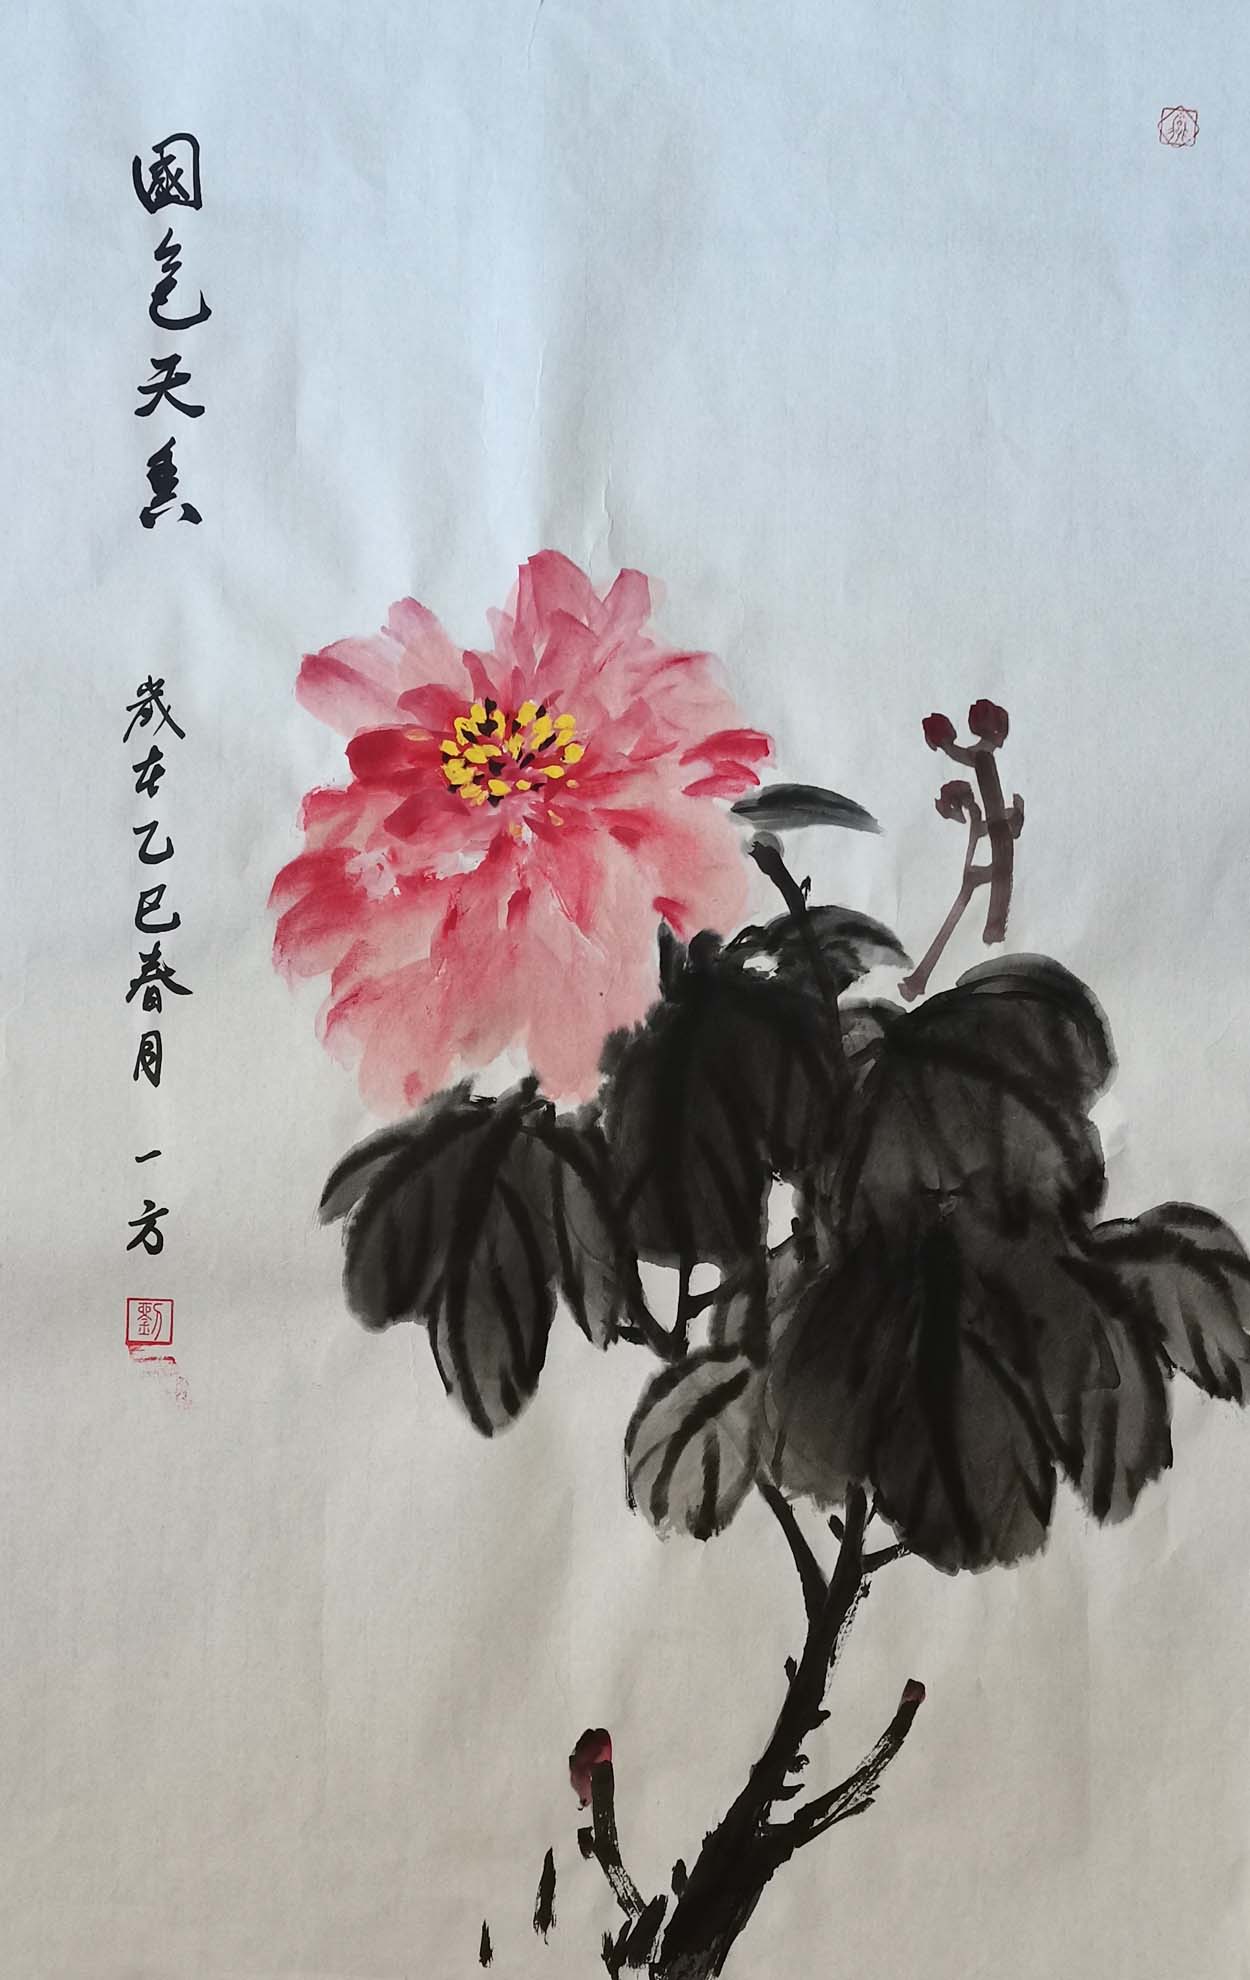 國色天香
歲在乙巳春月 一方
劉